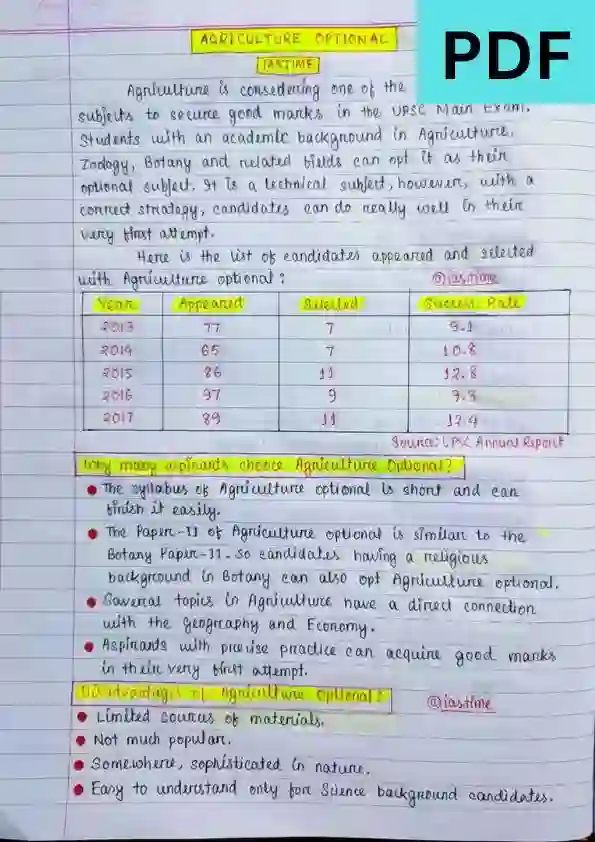 AGRICULTURE OPTIONAL
PDF
IASTIME
Agriculture is consedering one of the
subjects to secure good marks in the UPSC Main Exam.
Students with an academic background in Agriculture,
Zoology, Botany and related fields can opt it as their
optional subject. It is a technical subject, however, with a
correct strategy, candidates can do really well in their
very first attempt.
Here is the list of candidates appeared and selected
with Agriculture optional:
@iastime
Year Appeared Selected Success Rate
2013 77 7 9.1
2014 65 7 10.8
2015 86 11 12.8
2016 97 9 9.3
2017 89 11 12.4
Source: UPSC Annual Report
Why many aspirants choose Agriculture Optional?
• The syllabus of Agriculture optional is short and can
finish it easily.
• The Paper-II of Agriculture optional is similar to the
Botany Paper-II. So candidates having a religious
background in Botany can also opt Agriculture optional.
• Several topics in Agriculture have a direct connection
with the Geography and Economy.
• Aspirants with precise practice can acquire good marks
in their very first attempt.
Disadvantages of Agriculture Optional?
@iastime
• Limited sources of materials.
• Not much popular.
• Somewhere, sophisticated in nature.
• Easy to understand only for Science background candidates.